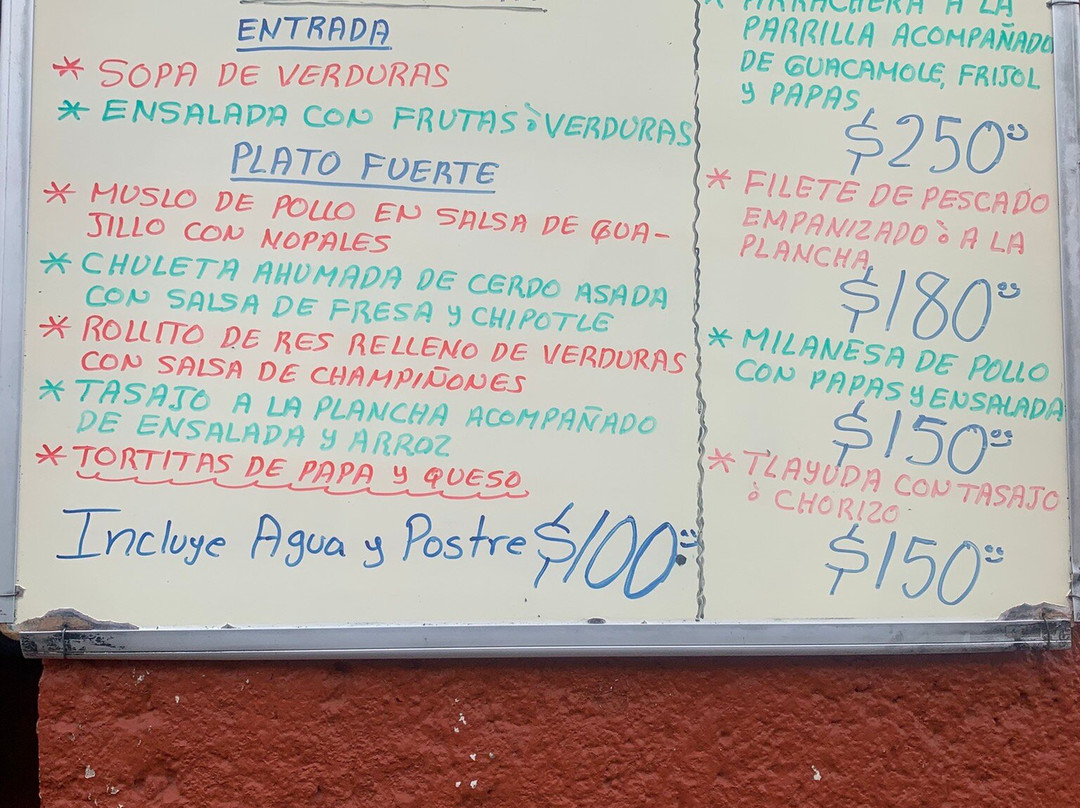 ENTRADA
* SOPA DE VERDURAS
* ENSALADA CON FRUTAS ò VERDURAS
PLATO FUERTE
* MUSLO DE POLLO EN SALSA DE GUA-
JILLO CON NOPALES
* CHULETA AHUMADA DE CERDO ASADA
CON SALSA DE FRESA y CHIPOTLE
* ROLLITO DE RES RELLENO DE VERDURAS
CON SALSA DE CHAMPIÑONES
* TASAJO A LA PLANCHA ACOMPAÑADO
DE ENSALADA y ARROZ
* TORTITAS DE PAPA y QUESO
Incluye Agua y Postre $100
* ARRACHERA A LA
PARRILLA ACOMPAÑADO
DE GUACAMOLE, FRIJOL
y PAPAS
$250
* FILETE DE PESCADO
EMPANIZADO ò A LA
PLANCHA
$180
* MILANESA DE POLLO
CON PAPAS y ENSALADA
$150
* TLAYUDA CON TASAJO
ò CHORIZO
$150